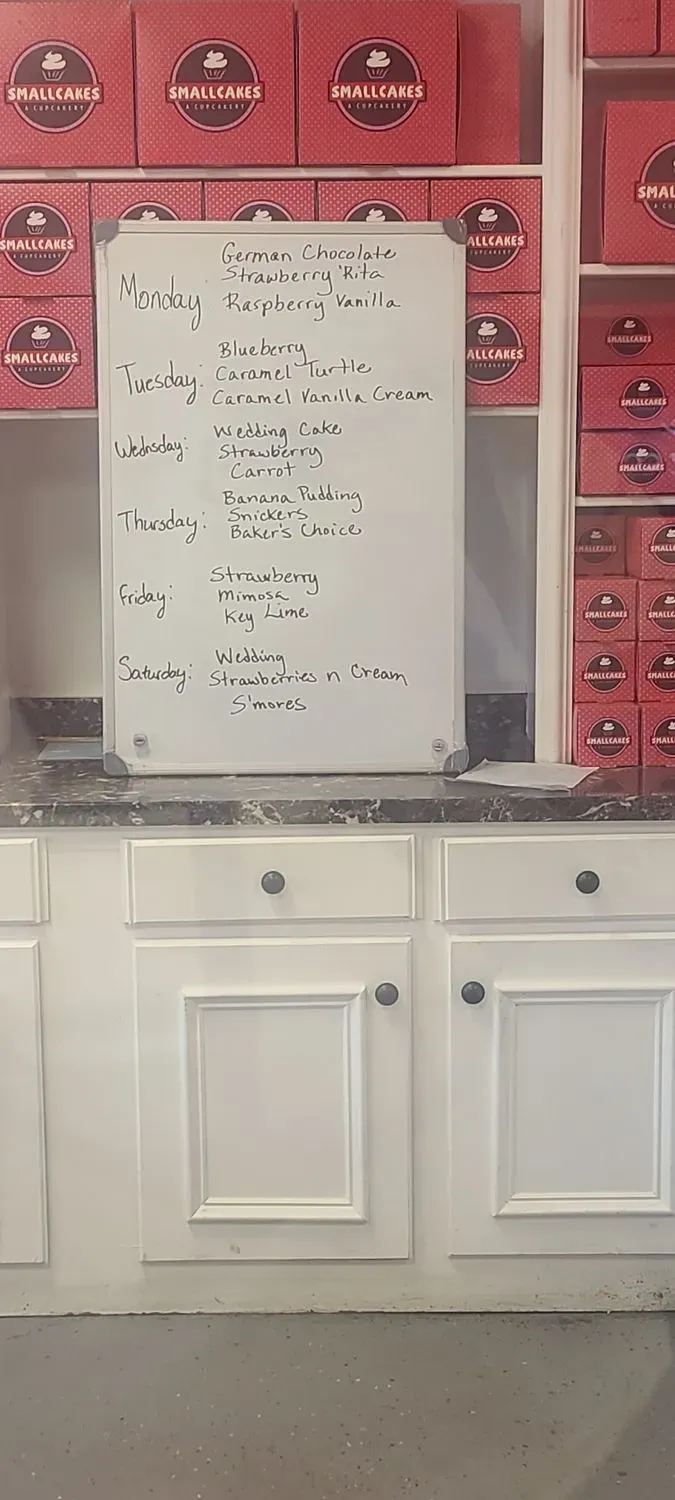 SMALLCAKES
A CUPCAKERY
SMALLCAKES
A CUPCAKERY
SMALLCAKES
A CUPCAKERY
SMALLCAKES
A CUPCAKERY
SMALLCAKES
A CUPCAKERY
German Chocolate
Strawberry 'Rita
Monday Raspberry Vanilla
Blueberry
Tuesday: Caramel Turtle
Caramel Vanilla Cream
Wedding Cake
Wednsday: Strawberry
Carrot
Banana Pudding
Thursday: Snickers
Baker's Choice
Strawberry
Friday: Mimosa
Key Lime
Wedding
Saturday: Strawberries n Cream
S'mores
ALLCAKES
CUPCAKERY
ALLCAKES
CUPCAKERY
SMAL
SMALLCAKES
SMALLCAKES
SMALLCAKES
SMALLCAKES
SMALLCAKES
SMALLCAKES
SMALLCAKES